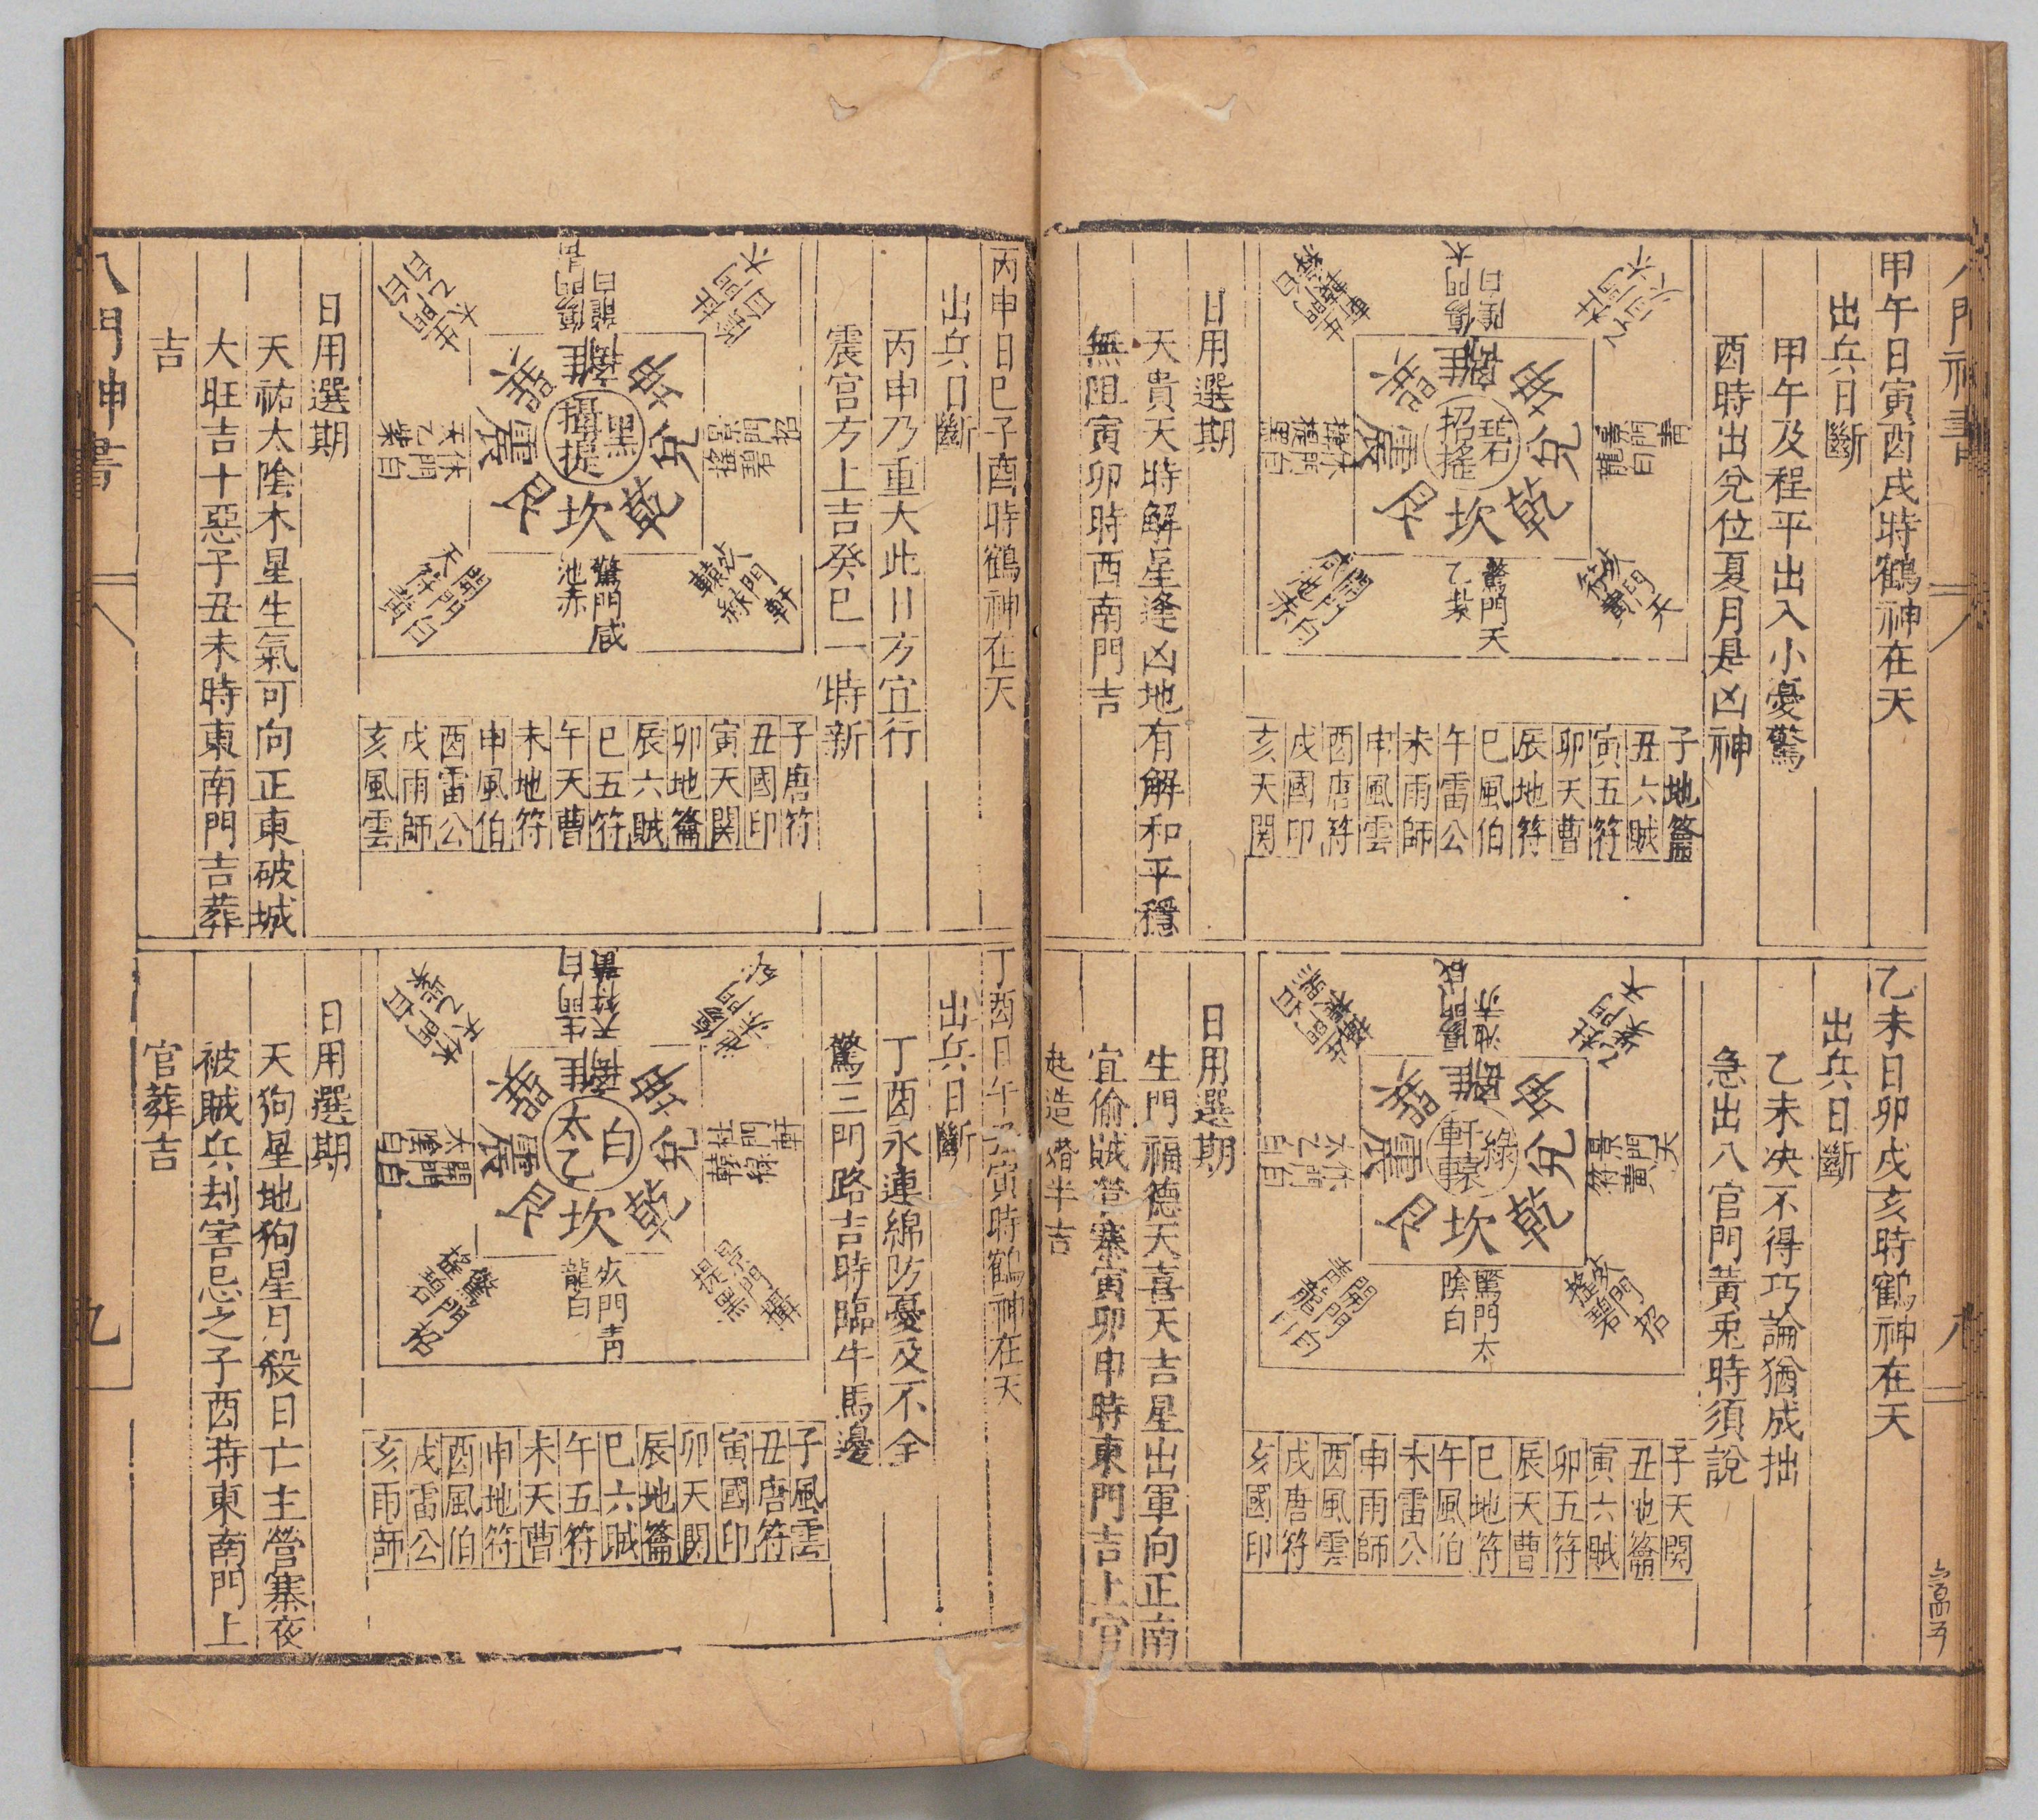 甲午日寅酉戌時鶴神在天
出兵日斷
甲午及程平出入小憂驚
酉時出兌位夏月是凶神
碧招搖
離坤兌乾坎艮震巽
驚門天乙紫
景門青龍白
子地籥
丑六賊
寅五符
卯天曹
辰地符
巳風伯
午雷公
未雨師
申風雲
酉唐符
戌國印
亥天関
日用選期
天貴天時解星逢凶地有解和平穩
無阻寅卯時西南門吉
乙未日卯戌亥時鶴神在天
出兵日斷
乙未决不得巧論猶成拙
急出八官門黃兎時須說
綠軒轅
離坤兌乾坎艮震巽
景門天符黃
驚門太陰白
子天関
丑地籥
寅六賊
卯五符
辰天曹
巳地符
午風伯
未雷公
申雨師
酉風雲
戌唐符
亥國印
日用選期
生門福德天喜天吉星出軍向正南
宜偷賊營寨寅卯申時東門吉上官
起造婚半吉
丙申日巳子酉時鶴神在天
出兵日斷
丙申乃重大此日方宜行
震宮方上吉癸巳一時新
黑攝提
離坤兌乾坎艮震巽
景門招搖碧
驚門咸池赤
開門天符黃
休門天乙紫白
子唐符
丑國印
寅天関
卯地籥
辰六賊
巳五符
午天曹
未地符
申風伯
酉雷公
戌雨師
亥風雲
日用選期
天祐太陰木星生氣可向正東破城
大旺吉十惡子丑未時東南門吉葬
吉
丁酉日午子寅時鶴神在天
出兵日斷
丁酉永連綿防憂及不全
驚三門路吉時臨牛馬邊
白太乙
離坤兌乾坎艮震巽
杜門軒轅綠
死門青龍白
開門太陰白
子風雲
丑唐符
寅國印
卯天関
辰地籥
巳六賊
午五符
未天曹
申地符
酉風伯
戌雷公
亥雨師
日用選期
天狗星地狗星月殺日亡主營寨夜
被賊兵刦害忌之子酉時東南門上
官葬吉
八門神書
八
九